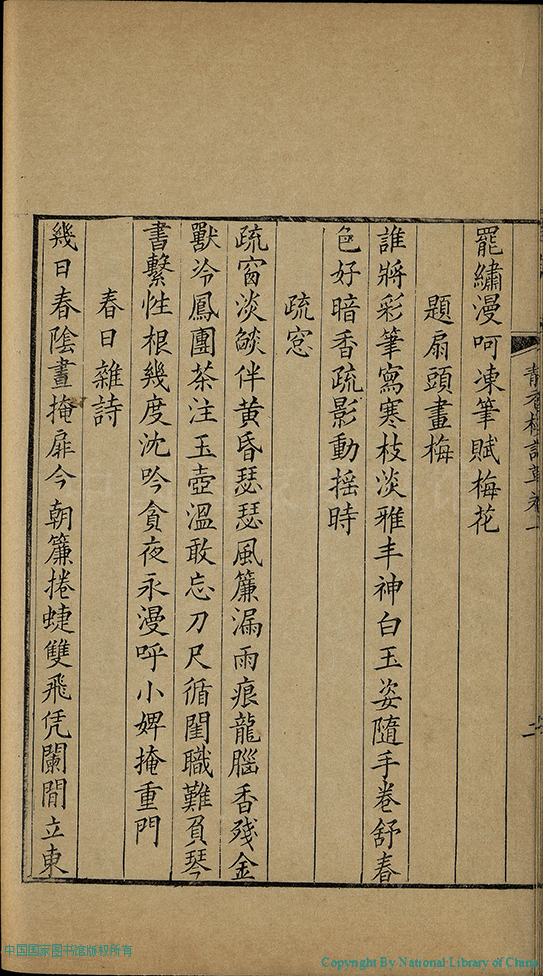 罷繡漫呵凍筆賦梅花
題扇頭畫梅
誰將彩筆寫寒枝淡雅丰神白玉姿隨手卷舒春
色好暗香疏影動搖時
疏窓
疏窗淡燄伴黄昏瑟瑟風簾漏雨痕龍腦香殘金
獸冷鳳團茶注玉壺溫敢忘刀尺循閨職難負琴
書繫性根幾度沈吟貪夜永漫呼小婢掩重門
春日雜詩
幾日春陰晝掩扉今朝簾捲蜨雙飛凭闌閒立東
中国国家图书馆版权所有
Copyright By National Library of China